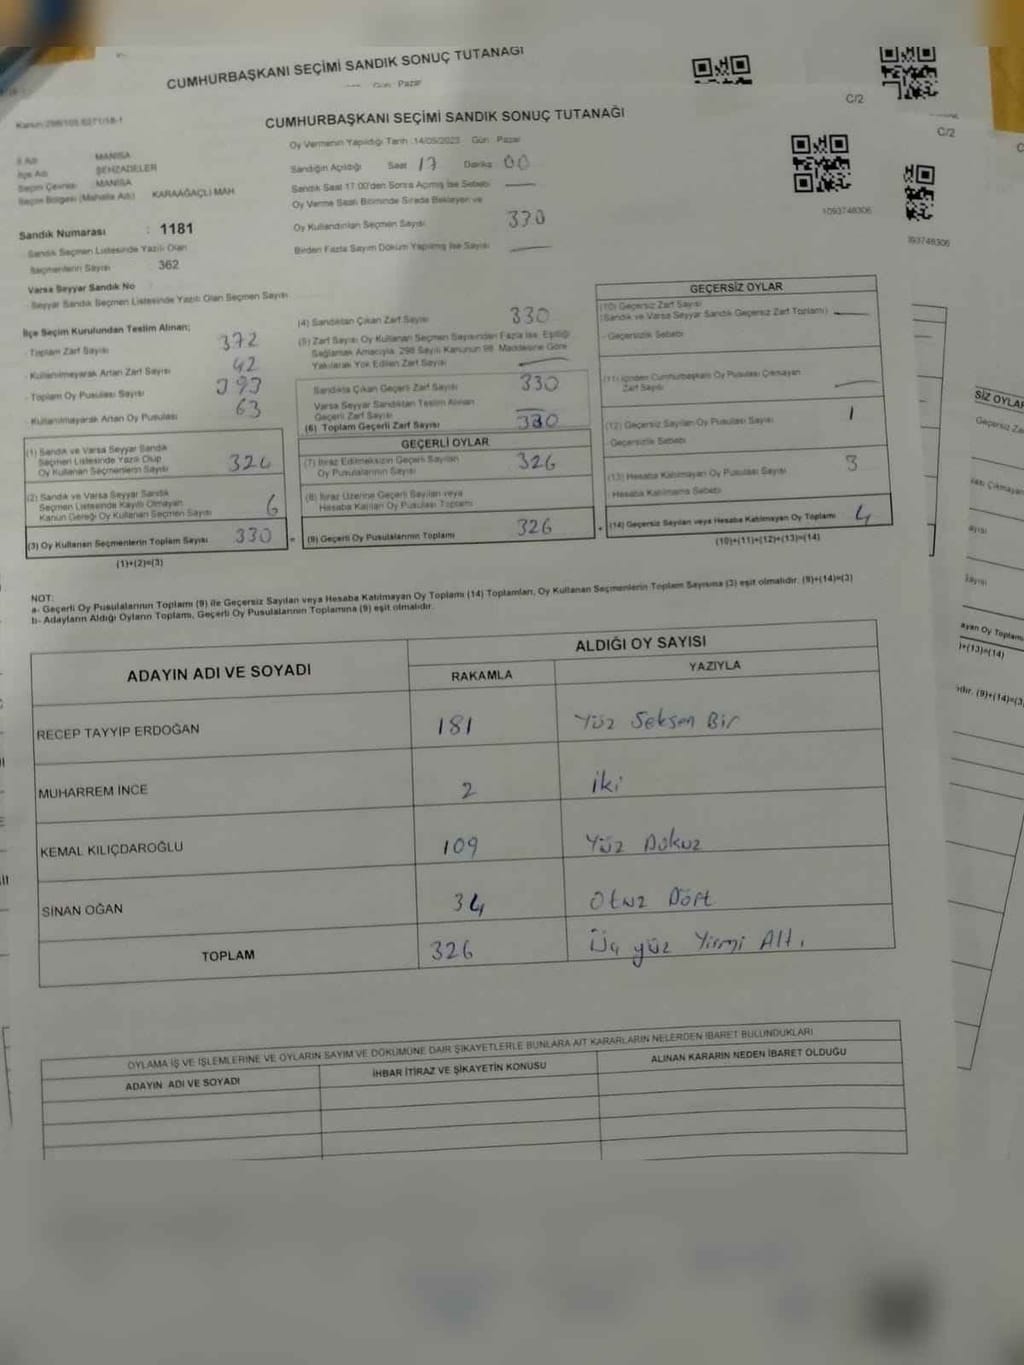 CUMHURBAŞKANI SEÇİMİ SANDIK SONUÇ TUTANAĞI
Gün Pazar
C/2
CUMHURBAŞKANI SEÇİMİ SANDIK SONUÇ TUTANAĞI
C/2
Oy Vermenin Yapıldığı Tarih :14/05/2023 Gün : Pazar
İl Adı : MANİSA
İlçe Adı : ŞEHZADELER
Seçim Çevresi : MANİSA
Seçim Bölgesi (Mahalle Adı) : KARAAĞAÇLI MAH.
Sandık Numarası : 1181
Sandık Seçmen Listesinde Yazılı Olan
Seçmenlerin Sayısı 362
Varsa Seyyar Sandık No
Seyyar Sandık Seçmen Listesinde Yazılı Olan Seçmen Sayısı
Sandığın Açıldığı Saat 17 Dakika 00
Sandık Saat 17.00'den Sonra Açılmış İse Sebebi
Oy Verme Saati Bitiminde Sırada Bekleyen ve
Oy Kullandırılan Seçmen Sayısı 330
Birden Fazla Sayım Döküm Yapılmış İse Sayısı
1093748306
İlçe Seçim Kurulundan Teslim Alınan;
- Toplam Zarf Sayısı 372
- Kullanılmayarak Artan Zarf Sayısı 42
- Toplam Oy Pusulası Sayısı 393
- Kullanılmayarak Artan Oy Pusulası 63
(1) Sandık ve Varsa Seyyar Sandık
Seçmen Listesinde Yazılı Olup
Oy Kullanan Seçmenlerin Sayısı 324
(2) Sandık ve Varsa Seyyar Sandık
Seçmen Listesinde Kayıtlı Olmayan
Kanun Gereği Oy Kullanan Seçmen Sayısı 6
(3) Oy Kullanan Seçmenlerin Toplam Sayısı 330
(1)+(2)=(3)
(4) Sandıktan Çıkan Zarf Sayısı 330
(5) Zarf Sayısı Oy Kullanan Seçmen Sayısından Fazla İse, Eşitliği
Sağlamak Amacıyla, 298 Sayılı Kanunun 98. Maddesine Göre
Yakılarak Yok Edilen Zarf Sayısı
Sandıkta Çıkan Geçerli Zarf Sayısı 330
Varsa Seyyar Sandıktan Teslim Alınan
Geçerli Zarf Sayısı
(6) Toplam Geçerli Zarf Sayısı 330
GEÇERLİ OYLAR
(7) İtiraz Edilmeksizin Geçerli Sayılan
Oy Pusulalarının Sayısı 326
(8) İtiraz Üzerine Geçerli Sayılan veya
Hesaba Katılan Oy Pusulası Toplamı
= (9) Geçerli Oy Pusulalarının Toplamı 326
GEÇERSİZ OYLAR
(10) Geçersiz Zarf Sayısı
(Sandık ve Varsa Seyyar Sandık Geçersiz Zarf Toplamı)
- Geçersizlik Sebebi
(11) İçinden Cumhurbaşkanı Oy Pusulası Çıkmayan
Zarf Sayısı
(12) Geçersiz Sayılan Oy Pusulası Sayısı 1
- Geçersizlik Sebebi
(13) Hesaba Katılmayan Oy Pusulası Sayısı 3
- Hesaba Katılmama Sebebi
+ (14) Geçersiz Sayılan veya Hesaba Katılmayan Oy Toplamı 4
(10)+(11)+(12)+(13)=(14)
NOT:
a- Geçerli Oy Pusulalarının Toplamı (9) ile Geçersiz Sayılan veya Hesaba Katılmayan Oy Toplamı (14) Toplamları, Oy Kullanan Seçmenlerin Toplam Sayısına (3) eşit olmalıdır. (9)+(14)=(3)
b- Adayların Aldığı Oyların Toplamı, Geçerli Oy Pusulalarının Toplamına (9) eşit olmalıdır.
ADAYIN ADI VE SOYADI
ALDIĞI OY SAYISI
RAKAMLA YAZIYLA
RECEP TAYYİP ERDOĞAN 181 Yüz Seksen Bir
MUHARREM İNCE 2 İki
KEMAL KILIÇDAROĞLU 109 Yüz Dokuz
SİNAN OĞAN 34 Otuz Dört
TOPLAM 326 Üç yüz Yirmi Altı
OYLAMA İŞ VE İŞLEMLERİNE VE OYLARIN SAYIM VE DÖKÜMÜNE DAİR ŞİKAYETLERLE BUNLARA AİT KARARLARIN NELERDEN İBARET BULUNDUKLARI
ADAYIN ADI VE SOYADI İHBAR İTİRAZ VE ŞİKAYETİN KONUSU ALINAN KARARIN NEDEN İBARET OLDUĞU